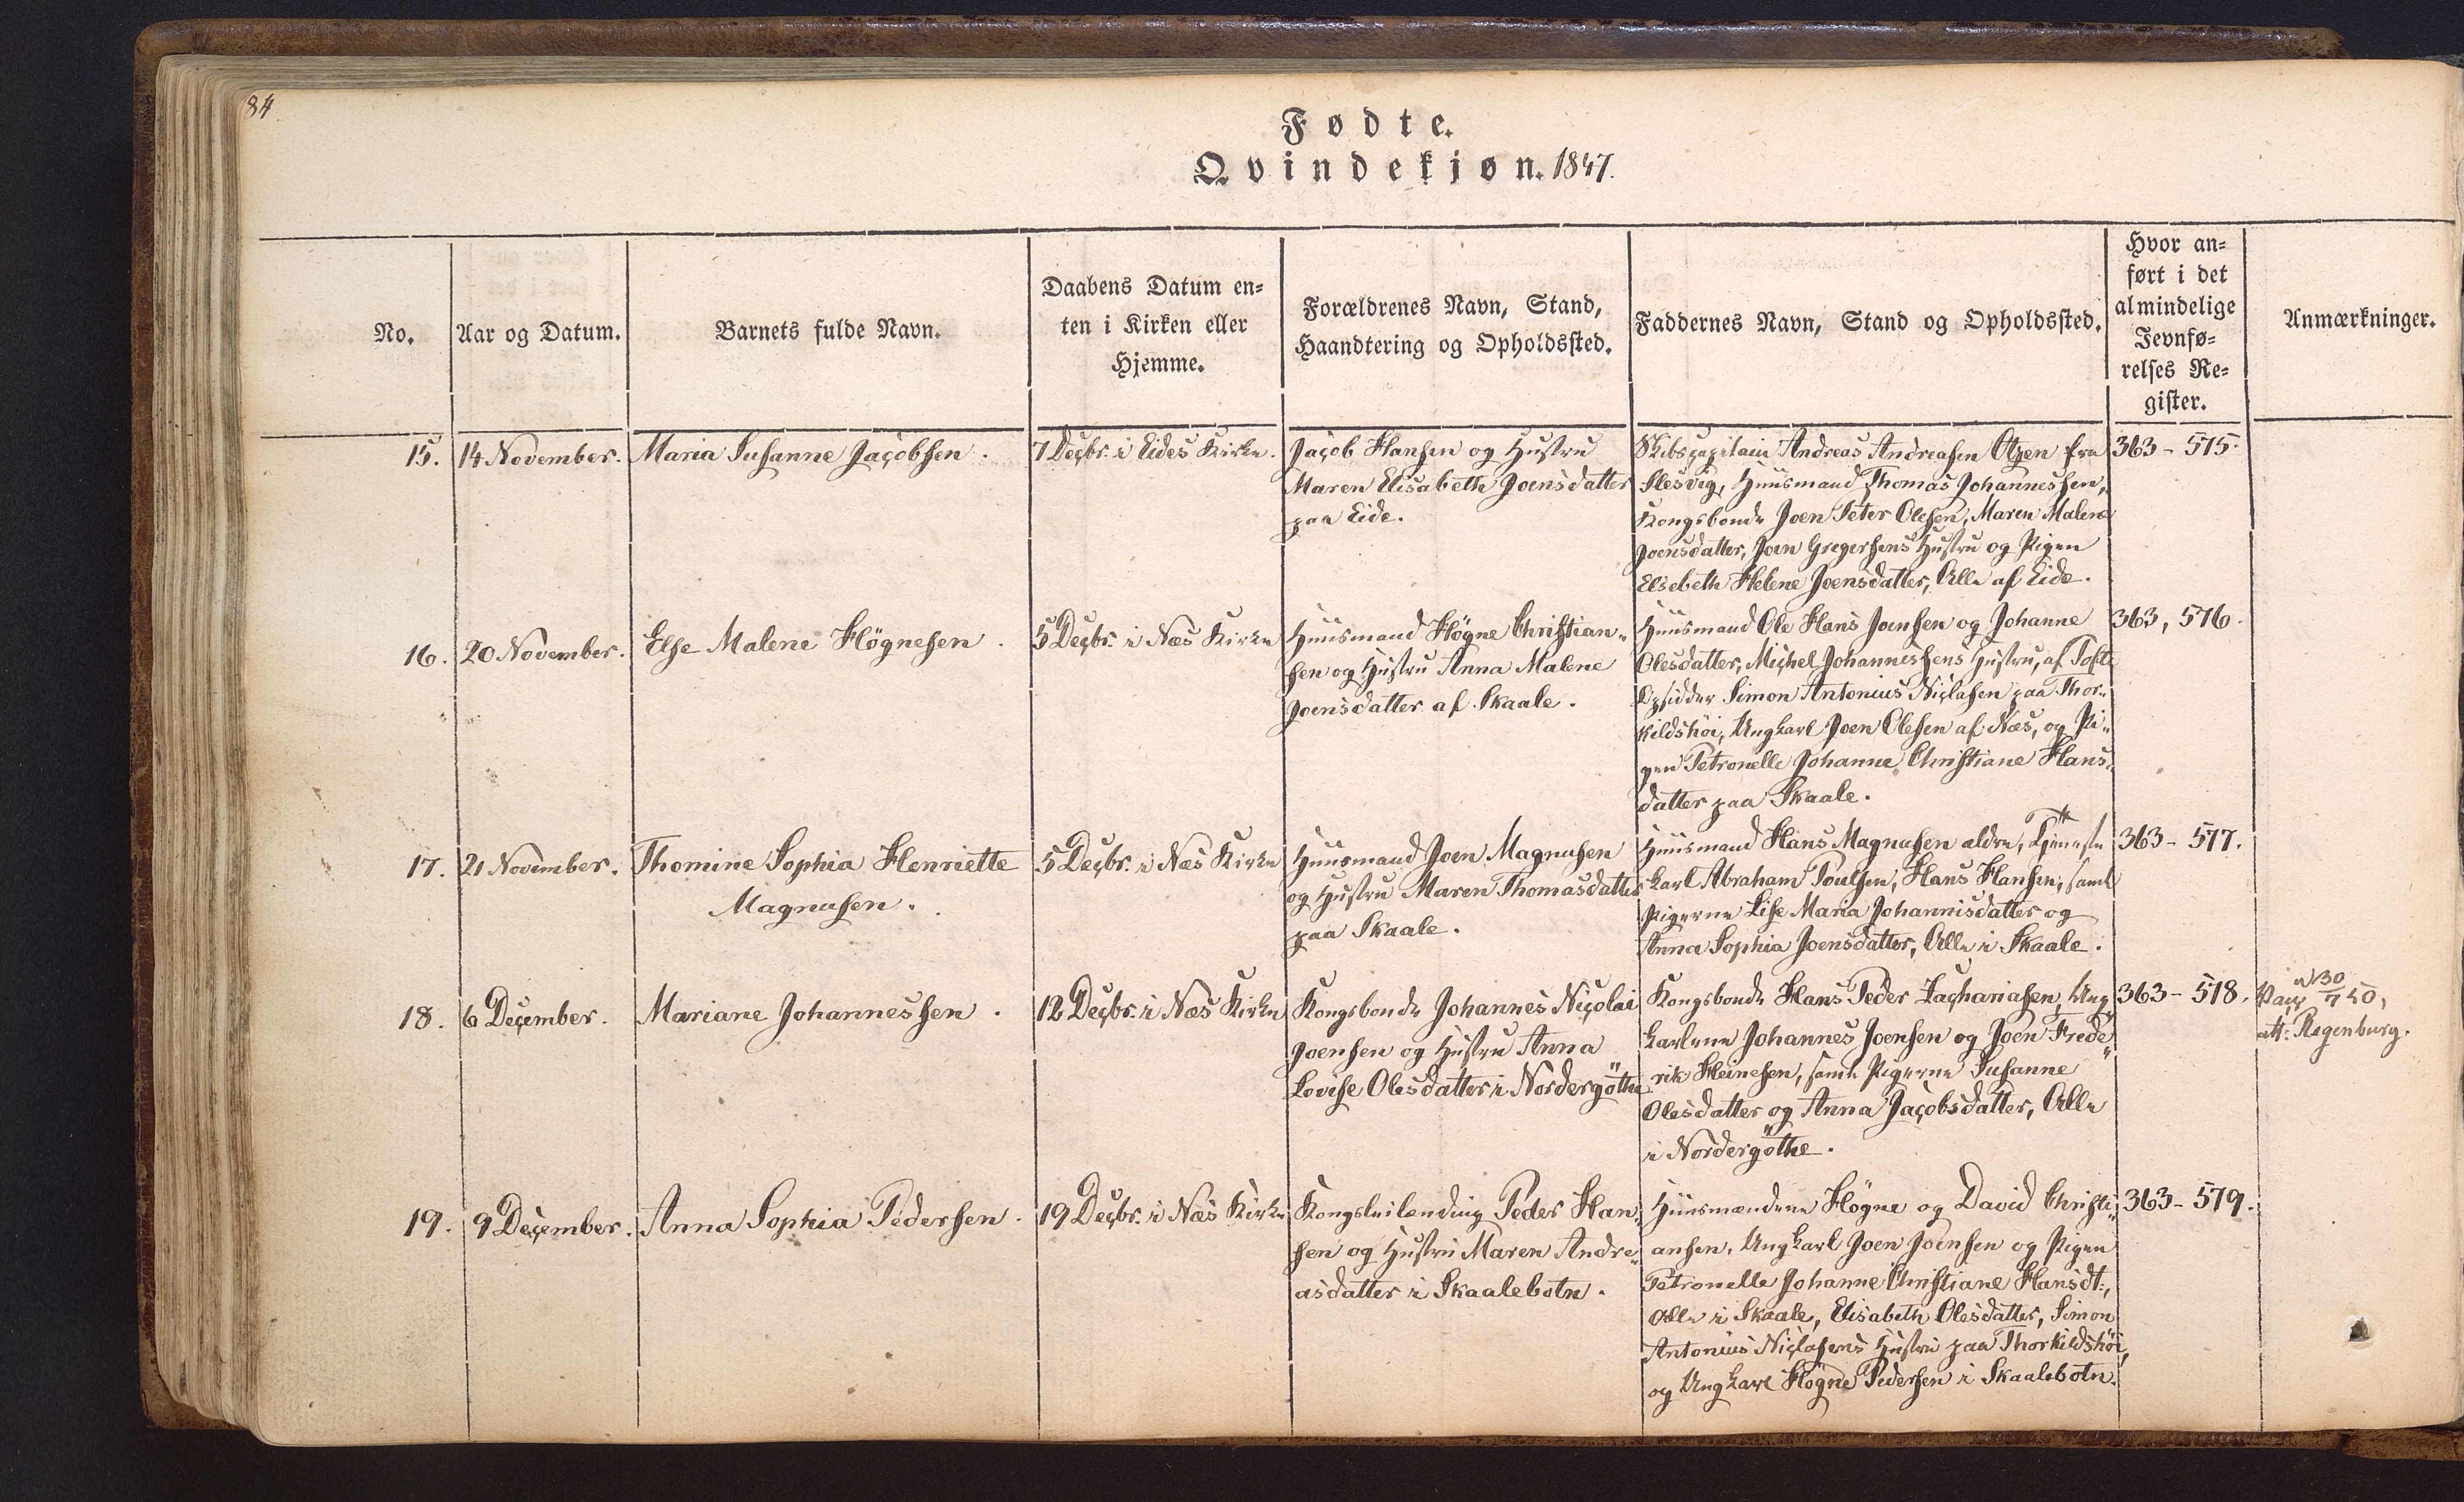 84.
Fødte.
Qvindekjøn. 1847.
No.
Aar og Datum.
Barnets fulde Navn.
Daabens Datum en-
ten i Kirken eller
Hjemme.
Forældrenes Navn, Stand,
Haandtering og Opholdssted.
Faddernes Navn, Stand og Opholdssted.
Hvor an-
ført i det
almindelige
Jevnfø-
relses Re-
gister.
Anmærkninger.
15.
14 November.
Maria Susanne Jacobsen.
7 Decbr. i Eides Kirke.
Jacob Hansen og Hustru
Maren Elisabeth Joensdatter
paa Eide.
Skibscapitain Andreas Andreasen Otzen fra
Slesvig, Huusmand Thomas Johannessen,
Kongsbonde Joen Peter Olesen, Maren Malene
Joensdatter, Joen Gregersens Hustru og Pigen
Elsebeth Helene Joensdatter, Alle af Eide.
363 - 575.
16.
20 November.
Else Malene Høgnesen.
5 Decbr. i Næs Kirke
Huusmand Høgne Christian-
sen og Hustru Anna Malene
Joensdatter af Skaale.
Huusmand Ole Hans Joensen og Johanne
Olesdatter, Michel Johannessens Hustru, af Tofte
Opsidder Simon Antonius Niclasen paa Thor-
kildshøi, Ungkarl Joen Olesen af Næs, og Pi-
gen Petronelle Johanne Christiane Hans-
datter paa Skaale.
363, 576.
17.
21 November.
Thomine Sophia Henriette
Magnusen.
5 Decbr. i Næs Kirke
Huusmand Joen Magnusen
og Hustru Maren Thomasdatter
paa Skaale.
Huusmand Hans Magnusen ældre, Tjeneste
karl Abraham Poulsen, Hans Hansen, samt
Pigerne Lise Maria Johannisdatter og
Anna Sophia Joensdatter, Alle i Skaale.
363 - 577.
18.
6 December.
Mariane Johannessen.
12 Decbr. i Næs Kirke
Kongsbonde Johannes Nicolai
Joensen og Hustru Anna
Lovise Olesdatter i Nordergøthe
Kongsbonde Hans Peder Zachariasen, Ung-
karlene Johannes Joensen og Joen Frede-
rik Heinesen, samt Pigerne Susanne
Olesdatter og Anna Jacobsdatter, Alle
i Nordergøthe.
363 - 518.
30/7 50,
att: Regenburg.
19.
9 December.
Anna Sophia Pedersen.
19 Decbr. i Næs Kirke
Kongsleilending Peder Han-
sen og Hustru Maren Andre-
asdatter i Skaalebotn.
Huusmændene Høgne og David Christi-
ansen, Ungkarl Joen Joensen og Pigen
Petronelle Johanne Christiane Hansdt:,
alle i Skaale, Elisabeth Olesdatter, Simon
Antonius Niclasens Hustru paa Thorkildshøi,
og Ungkarl Høgne Pedersen i Skaalebotn.
363 - 579.